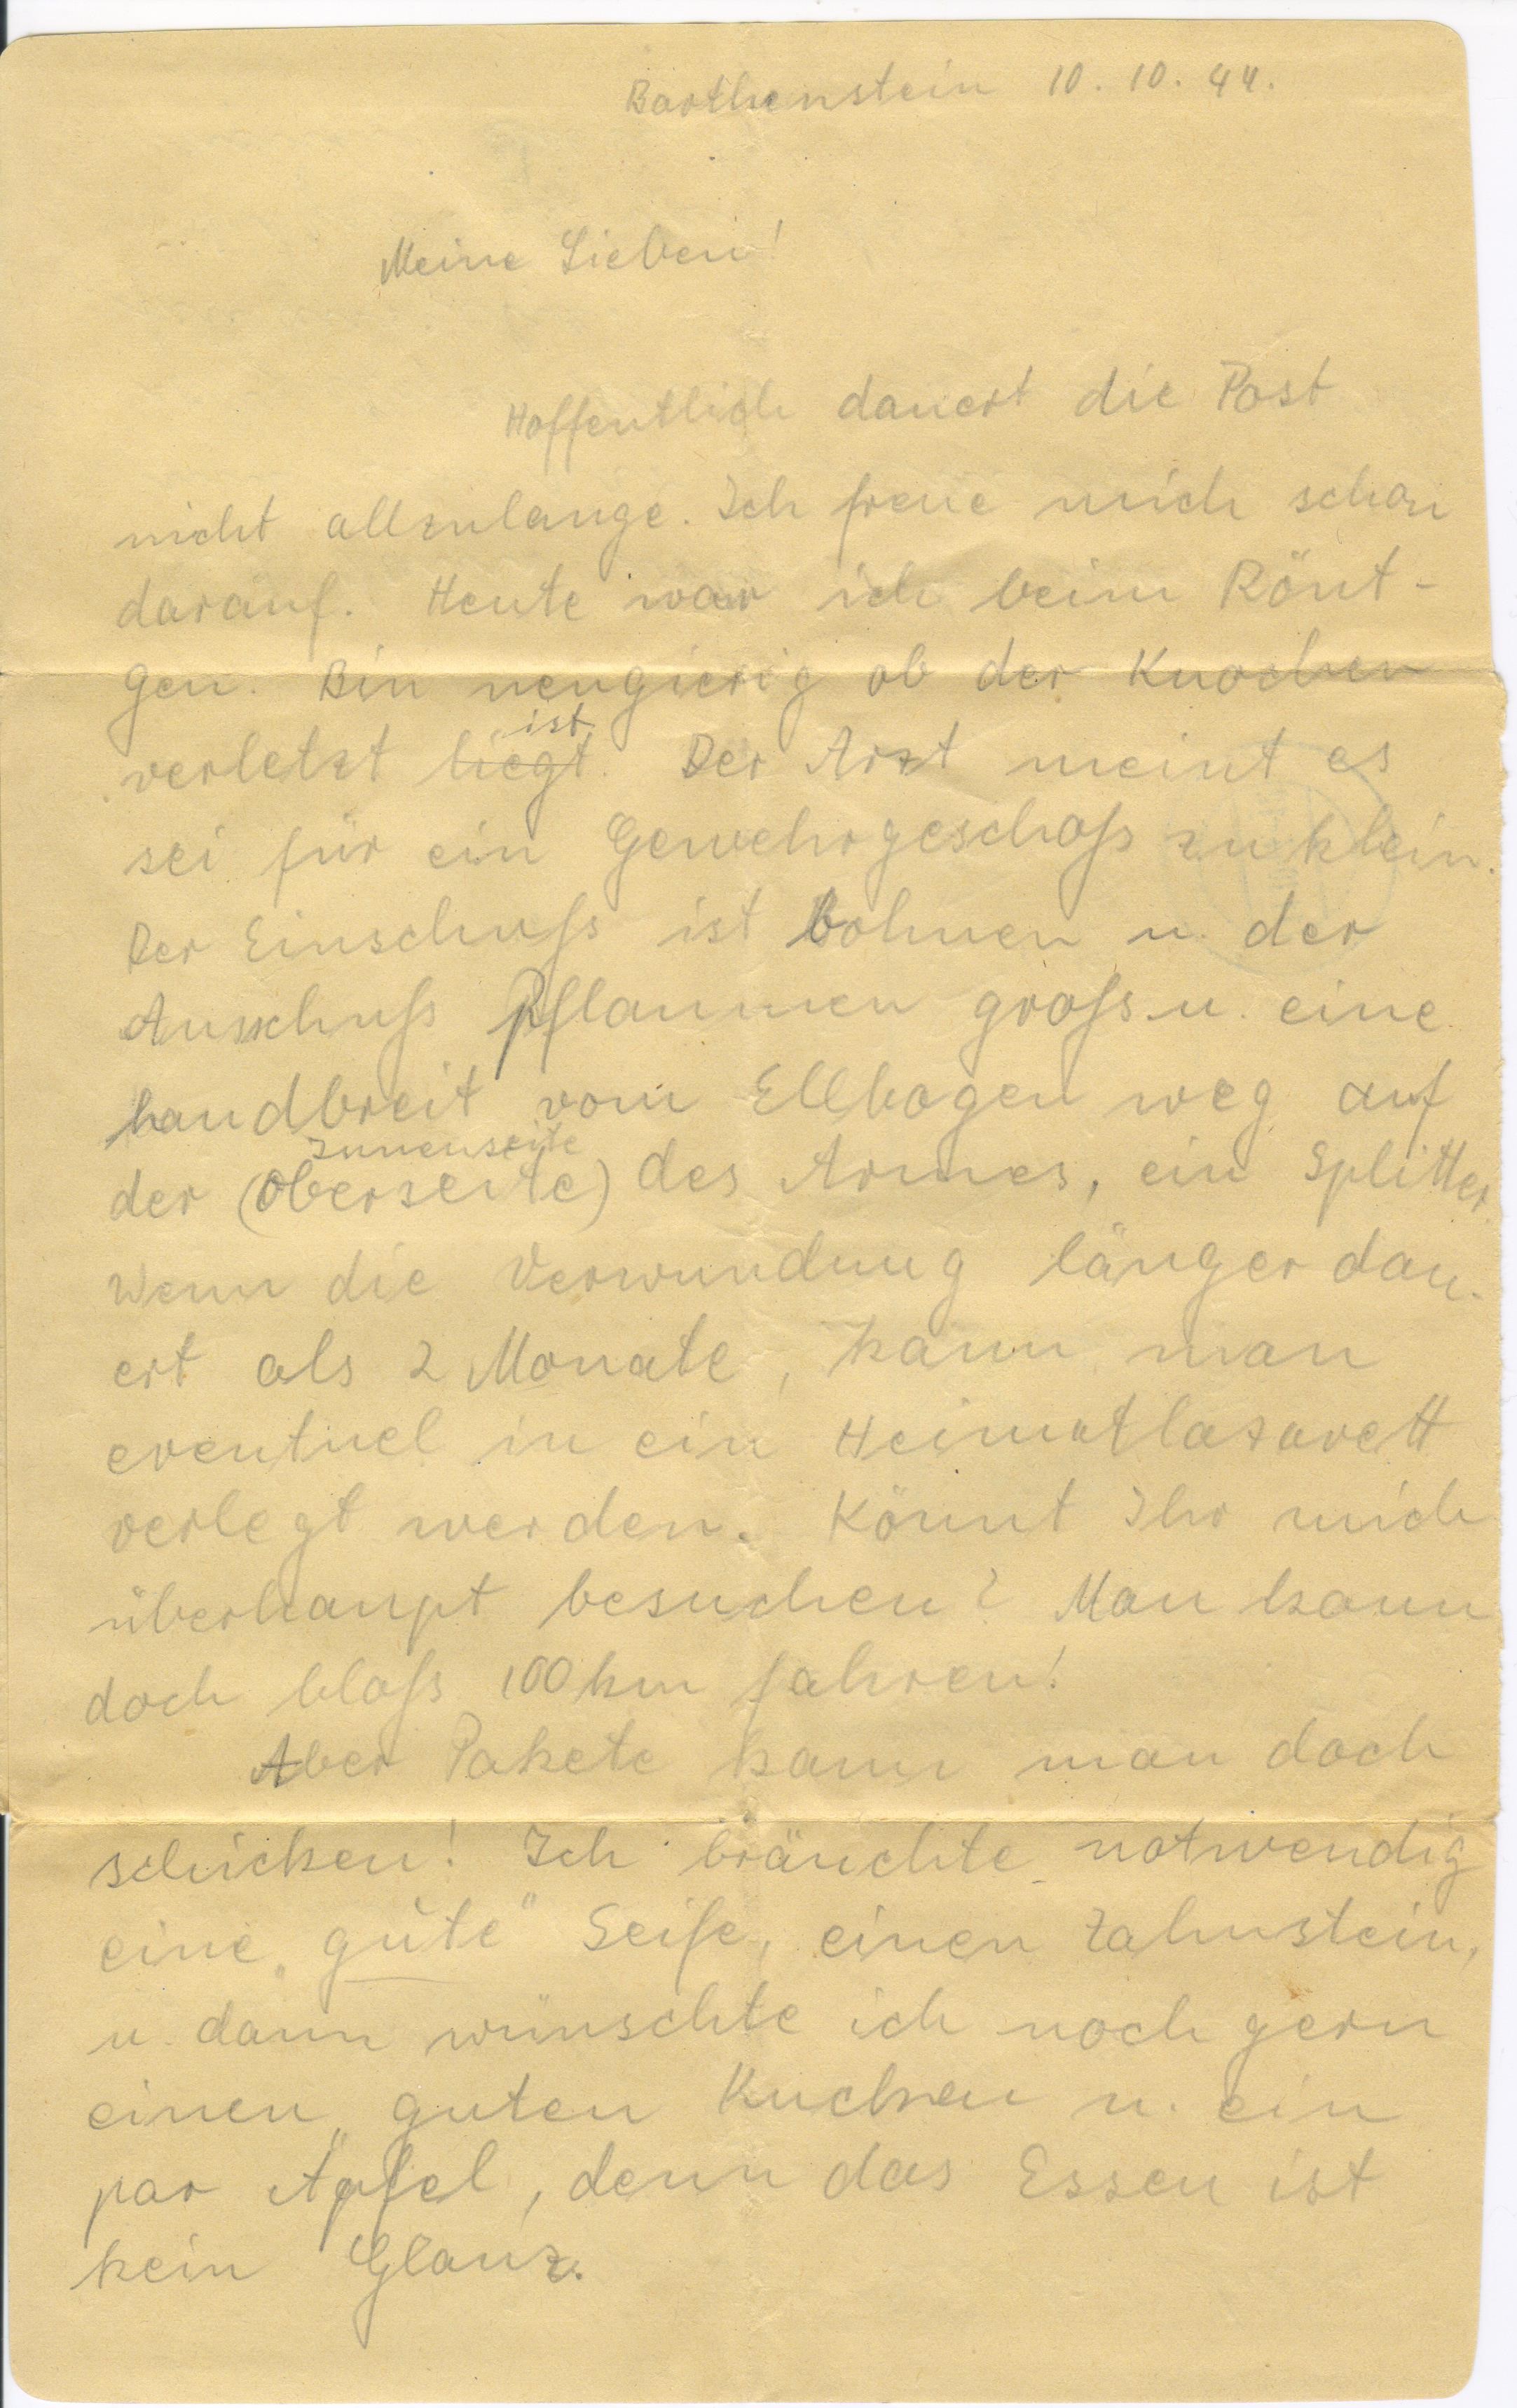 Barthenstein 10. 10. 44.
Meine Lieben!
Hoffentlich dauert die Post
nicht allzulange. Ich freue mich schon
darauf. Heute war ich beim Rönt-
gen. Bin neugierig ob der Knochen
ist
verletzt liegt. Der Arzt meint es
sei für ein Gewehrgeschoß zu klein.
Der Einschuß ist bohnen u. der
Ausschuß Pflaumen groß u. eine
handbreit vom Ellbogen weg auf
Innenseite
der (Oberseite) des Armes, ein Splitter.
Wenn die Verwundung länger dau-
ert als 2 Monate, kann man
eventuel in ein Heimatlazarett
verlegt werden. Könnt Ihr mich
überhaupt besuchen? Man kann
doch bloß 100 km fahren!
Aber Pakete kann man doch
schicken! Ich bräuchte notwendig
eine „gute" Seife, einen Zahnstein,
u. dann wünschte ich noch gern
einen „guten Kuchen u. ein
par Äpfel, denn das Essen ist
kein Glanz.